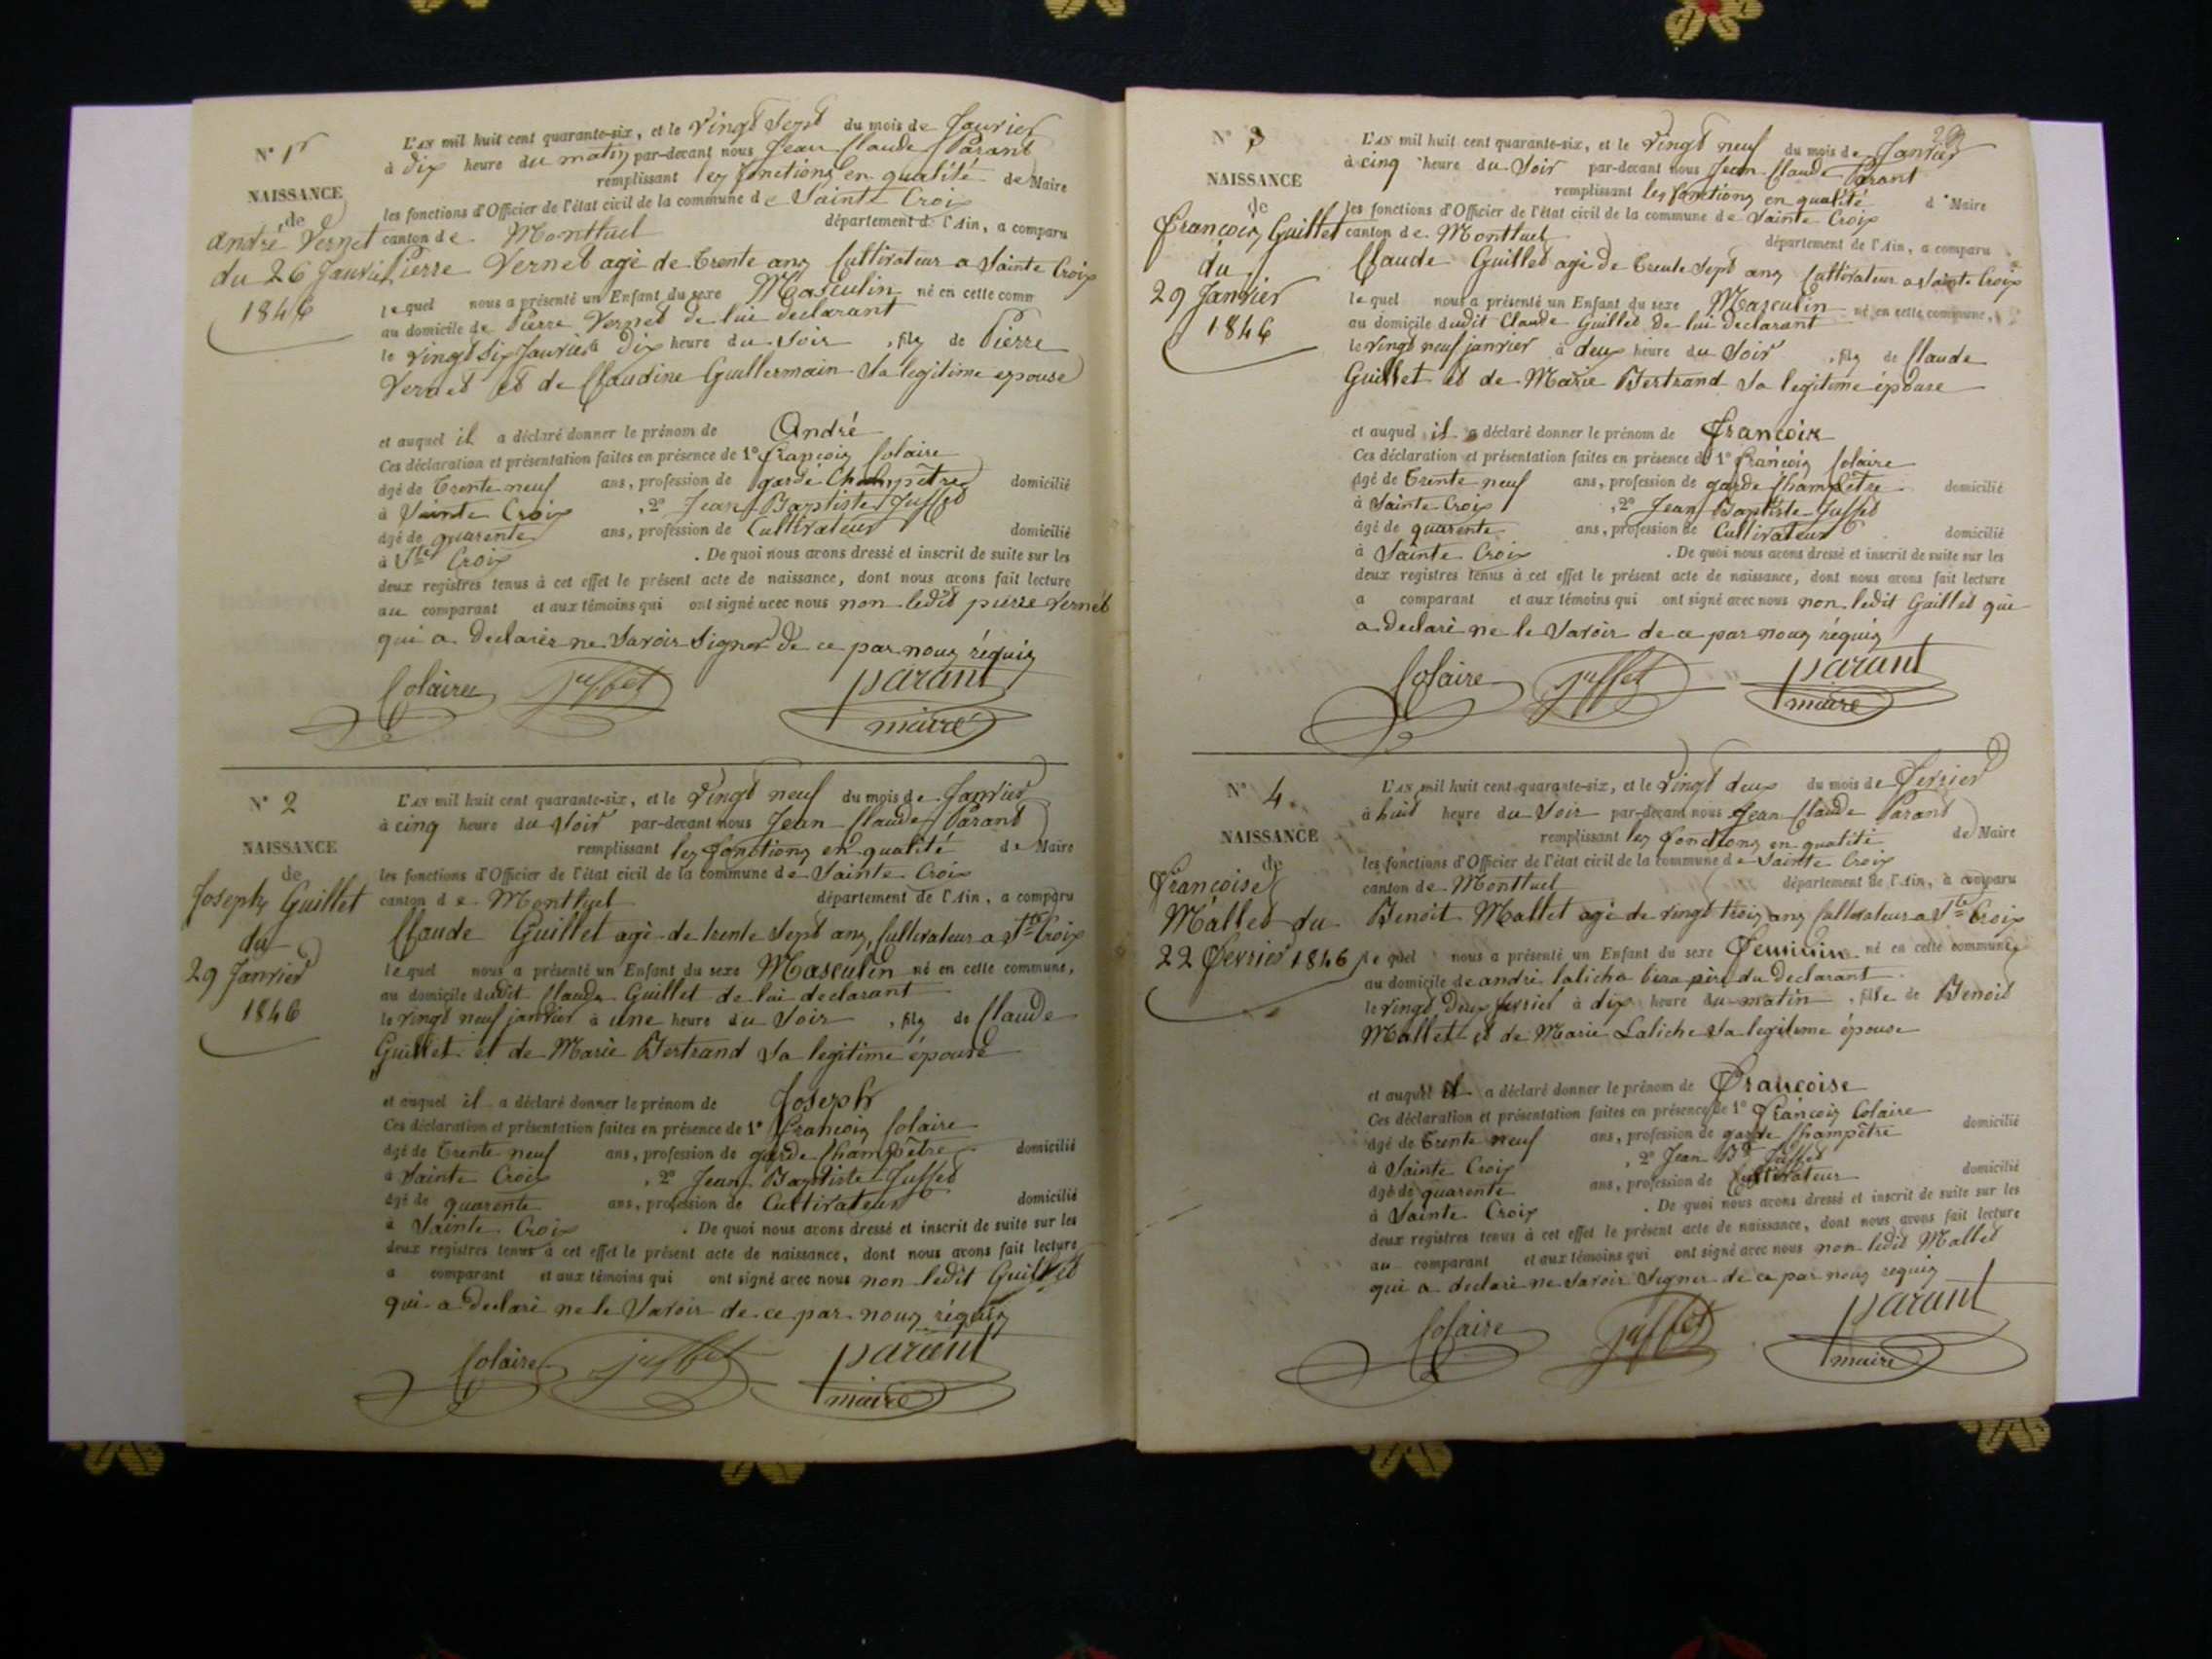 N° 1r
NAISSANCE
de
André Vernet
du 26 Janvier
1846
L'AN mil huit cent quarante-six, et le vingt sept du mois de Janvier
à dix heure du matin par-devant nous Jean Claude Parant
remplissant les fonctions en qualité de Maire
les fonctions d'Officier de l'état civil de la commune de Sainte Croix
canton de Montluel département d l'Ain, a comparu
Pierre Vernet agé de trente ans Cultivateur a Sainte Croix
lequel nous a présenté un Enfant du sexe Masculin né en cette comm
au domicile de Pierre Vernet de lui declarant
le vingt six Janvier à dix heure du Soir, fils de Pierre
Vernet et de Claudine Guillermain Sa legitime epouse
et auquel il a déclaré donner le prénom de André
Ces déclaration et présentation faites en présence de 1° François Colaire
âgé de trente neuf ans, profession de garde Champêtre domicilié
à Sainte Croix, 2° Jean Baptiste Juffet
âgé de quarente ans, profession de Cultivateur domicilié
à Ste Croix. De quoi nous avons dressé et inscrit de suite sur les
deux registres tenus à cet effet le présent acte de naissance, dont nous avons fait lecture
au comparant et aux témoins qui ont signé avec nous non ledit pierre Vernet
qui a declarer ne Savoir Signer de ce par nous réquis
Colaire juffet parant
maire
N° 2
NAISSANCE
de
Joseph Guillet
du
29 Janvier
1846
L'AN mil huit cent quarante-six, et le vingt neuf du mois de Janvier
à cinq heure du Soir par-devant nous Jean Claude Parant
remplissant les fonctions en qualité de Maire
les fonctions d'Officier de l'état civil de la commune de Sainte Croix
canton de Montluel département de l'Ain, a comparu
Claude Guillet agé de trente Sept ans, Cultivateur a Ste Croix
lequel nous a présenté un Enfant du sexe Masculin né en cette commune,
au domicile dudit Claude Guillet de lui declarant
le vingt neuf janvier à une heure du Soir, fils de Claude
Guillet et de Marie Bertrand Sa legitime épouse
et auquel il a déclaré donner le prénom de Joseph
Ces déclaration et présentation faites en présence de 1° François Colaire
âgé de trente neuf ans, profession de garde Champêtre domicilié
à Sainte Croix, 2° Jean Baptiste Juffet
âgé de quarente ans, profession de Cultivateur domicilié
à Sainte Croix. De quoi nous avons dressé et inscrit de suite sur les
deux registres tenus à cet effet le présent acte de naissance, dont nous avons fait lecture
a comparant et aux témoins qui ont signé avec nous non ledit Guillet
qui a declaré ne le Savoir de ce par nous réquis
Colaire juffet parant
maire
N° 3
NAISSANCE
de
François Guillet
du
29 Janvier
1846
L'AN mil huit cent quarante-six, et le vingt neuf du mois de Janvier
à cinq heure du Soir par-devant nous Jean Claude Parant
remplissant les fonctions en qualité d Maire
les fonctions d'Officier de l'état civil de la commune de Sainte Croix
canton de Montluel département de l'Ain, a comparu
Claude Guillet agé de trente Sept ans Cultivateur a Sainte Croix
lequel nous a présenté un Enfant du sexe Masculin né en cette commune,
au domicile dudit Claude Guillet de lui declarant
le vingt neuf janvier à deux heure du Soir, fils de Claude
Guillet et de Marie Bertrand Sa legitime épouse
et auquel il a déclaré donner le prénom de François
Ces déclaration et présentation faites en présence de 1° François Colaire
âgé de trente neuf ans, profession de garde Champêtre domicilié
à Sainte Croix, 2° Jean Baptiste Juffet
âgé de quarente ans, profession de Cultivateur domicilié
à Sainte Croix. De quoi nous avons dressé et inscrit de suite sur les
deux registres tenus à cet effet le présent acte de naissance, dont nous avons fait lecture
a comparant et aux témoins qui ont signé avec nous non ledit Guillet qui
a declaré ne le Savoir de ce par nous réquis
Colaire juffet parant
maire
N° 4
NAISSANCE
de
Françoise
Mallet du
22 Fevrier 1846
L'AN mil huit cent quarante-six, et le vingt deux du mois de Fevrier
à huit heure du Soir par-devant nous Jean Claude Parant
remplissant les fonctions en qualité de Maire
les fonctions d'Officier de l'état civil de la commune de Sainte Croix
canton de Montluel département de l'Ain, à comparu
Benoit Mallet agé de vingt trois ans Cultivateur a Ste Croix
lequel nous a présenté un Enfant du sexe Feminin né en cette commune,
au domicile de andré laliche beau pére du declarant
le vingt deux fevrier à dix heure du matin, fille de Benoit
Mallet et de Marie Laliche Sa legitime épouse
et auquel il a déclaré donner le prénom de Françoise
Ces déclaration et présentation faites en présence de 1° François Colaire
âgé de trente neuf ans, profession de garde Champêtre domicilié
à Sainte Croix, 2° Jean Bte Juffet
âgé de quarente ans, profession de Cultivateur domicilié
à Sainte Croix. De quoi nous avons dressé et inscrit de suite sur les
deux registres tenus à cet effet le présent acte de naissance, dont nous avons fait lecture
au comparant et aux témoins qui ont signé avec nous non ledit Mallet
qui a declaré ne Savoir Signer de ce par nous requis
Colaire juffet parant
maire